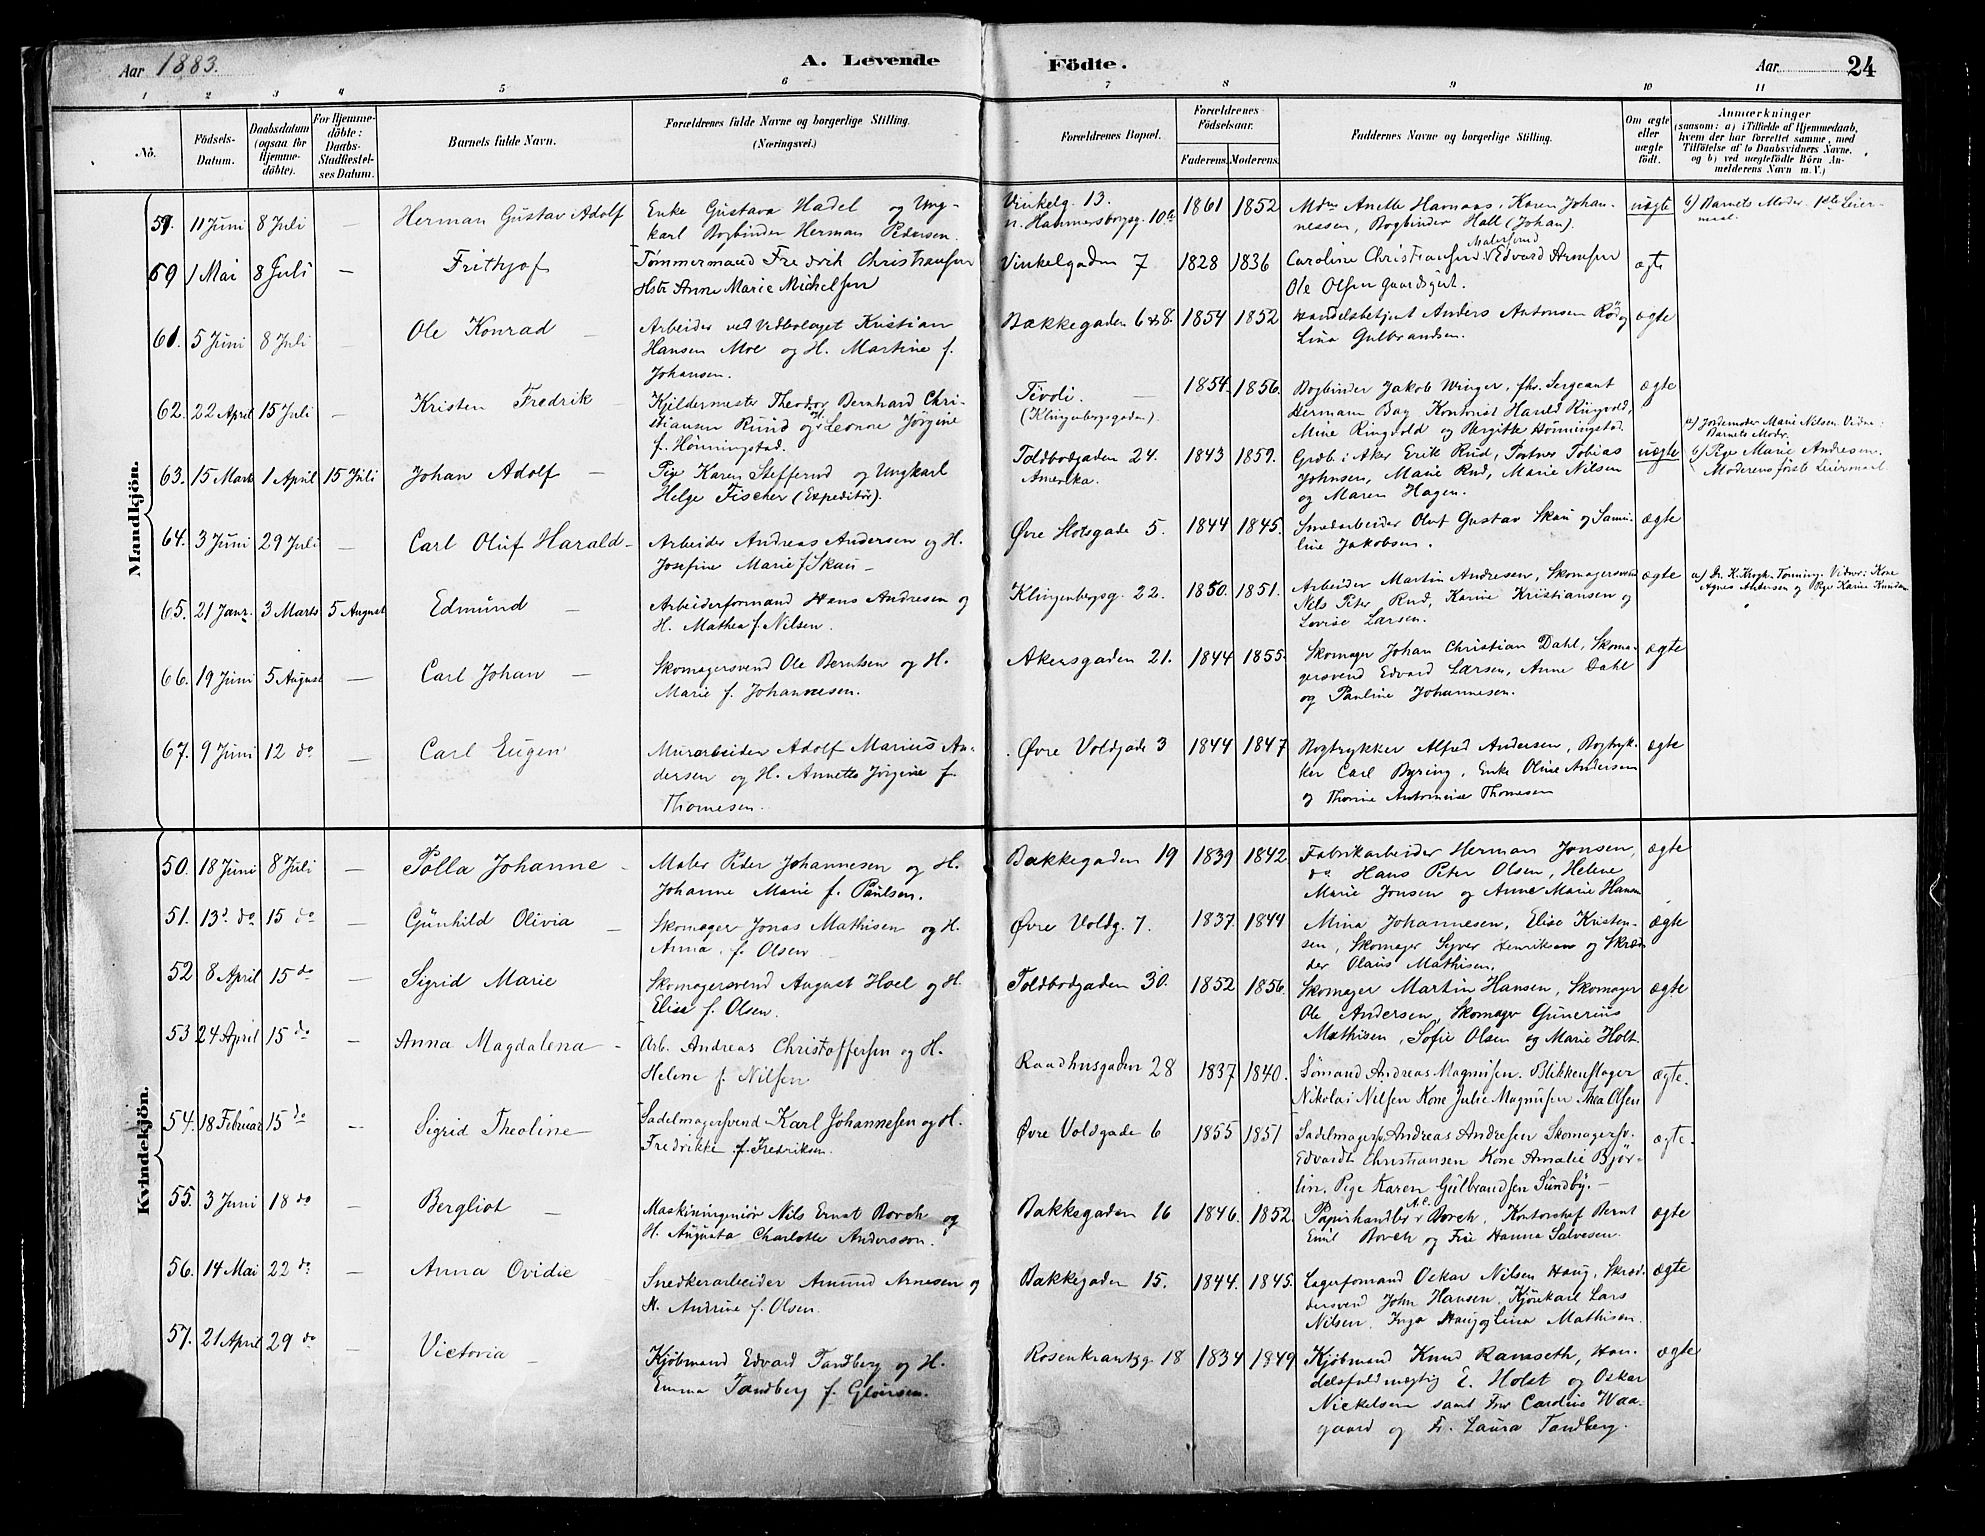 Aar 1883.
A. Levende
Födte.
Aar
24
1 2 3 4 5 6 7 8 9 10 11
No.
Födsels-
Datum.
Daabsdatum
(ogsaa for
Hjemme-
döbte).
For Hjemme-
döbte:
Daabs-
Stadfæstel-
ses Datum.
Barnets fulde Navn.
Forældrenes fulde Navne og borgerlige Stilling.
(Næringsvei.)
Forældrenes Bopæl.
Forældrenes
Födselsaar.
Faderens. Moderens.
Faddernes Navne og borgerlige Stilling.
Om ægte
eller
uægte
födt.
Anmærkninger
(saasom: a) i Tilfælde af Hjemmedaab,
hvem der har forrettet samme, med
Tilföielse af to Daabsvidners Navne.
og b) ved uægtefödte Börn An-
melderens Navn m. V.)
Mandkjön.
59. 11 Juni 8 Juli — Herman Gustav Adolf
Enke Gustava Hadel og Ung-
karl Bogbinder Herman Pedersen.
Vinkelg. 13.
n. Hammersborgg. 10b
1861 1852
Mdm Anette Hansas, Karen Johan-
nessen, Bogbinder Hall (Johan).
uægte
b) Barnets Moder. 1ste Leier-
maal.
60 1 Mai 8 Juli — Frithjof
Tømmermand Fredrik Christiansen
Hstr Anne Marie Michelsen
Vinkelgaden 7 1828 1836
Caroline Christiansen Malersvend Edvard Arnesen
Ole Olsen Gaardsgut.
ægte
61. 5 Juni 8 Juli — Ole Konrad —
Arbeider ved Vedbolaget Kristian
Hansen Moe og H. Martine f.
Johansen.
Bakkegaden 6 & 8. 1854 1852
Handelsbetjent Anders Antonsen Rød og
Lina Gulbrandsen.
ægte
62. 22 April 15 Juli — Kristen Fredrik —
Kjeldermester Theodor Bernhard Chri-
stiansen Rüud og H. Leonoe Jørgine
f. Hønningstad.
Tivoli. —
(Klingenbergsgaden).
1854. 1856.
Bogbinder Jakob Winger, fhv. Sergeant
Hermann Bay Kontorist Harald Ringvold,
Mine Ringvold og Birgitte Hønningstad.
ægte
63. 15 Marts 1 April 15 Juli Johan Adolf —
Pige Karen Steffensd og Ungkarl
Helge Fischer (Expeditør).
Toldbodgaden 24.
Amerika.
1843 1859.
Grdb. i Aker Erik Rud, Portner Tobias
Johnsen, Marie Rud, Marie Nilsen
og Maren Hagen.
uægte
a) Jordemoder Marie Nilsen Vidne:
Barnets Moder.
b) Pige Marie Andresen.
Moderens første Leiermaal
64. 3 Juni 29 Juli — Carl Oluf Harald —
Arbeider Andreas Andersen og H.
Josefine Marie f. Skau —
Øvre Slotsgade 5. 1844 1845.
Smedarbeider Oluf Gustav Skau og Samu-
line Jakobsen.
ægte
65. 21 Janr. 3 Marts 5 August Edmund —
Arbeiderformand Hans Andresen og
H. Mathea f. Nilsen.
Klingenbergg. 22. 1850. 1851.
Arbeider Martin Andresen, Skomagersvend
Nils Peter Rud, Karine Kristiansen og
Lovise Larsen.
ægte
a) Dr. K. Krogh-Tonning. Vidner: Kone
Agnes Andersen og Pige Karine Knudsen
66. 19 Juni 5 August — Carl Johan —
Skomagersvend Ole Berntsen og H.
Marie f. Johannesen.
Akersgaden 21. 1844 1855.
Skomager Johan Christian Dahl, Skoma-
gersvend Edvard Larsen, Anne Dahl
og Pauline Johannesen.
ægte
67. 9 Juni 12 do — Carl Eugen
Murarbeider Adolf Marius An-
dersen og H. Annette Jørgine f.
Thomesen.
Øvre Voldgade 3 1844 1847
Bogtrykker Alfred Andersen, Bogtryk-
ker Carl Byring, Enke Oline Andersen
og Thorine Antomine Thomesen
ægte
Kvindekjön.
50. 18 Juni 8 Juli — Polla Johanne —
Maler Peder Johannesen og H.
Johanne Marie f. Paulsen.
Bakkegaden 19 1839 1842.
Fabrikarbeider Herman Jonsen,
do Hans Peter Olsen, Helene
Marie Jonsen og Anne Marie Hansen
ægte
51. 13. do 15 do — Gunhild Olivia —
Skomager Jonas Mathisen og H.
Anna. f. Olsen
Øvre Voldg. 7. 1837. 1844
Mina Johannesen, Elise Kristen-
sen, Skomager Syver Henriksen og Skræd-
der Olaus Mathisen.
ægte
52 8 April 15 do — Sigrid Marie
Skomagersvend August Hoel og H.
Elise f. Olsen.
Toldbodgaden 30. 1852 1856.
Skomager Martin Hansen, Skomager
Ole Andersen, Skomager Gunerius
Mathisen, Sofie Olsen og Marie Holt
ægte
53 24 April 15 do — Anna Magdalena —
Arb. Andreas Christoffersen og H.
Helene f. Nilsen
Raadhusgaden 28 1837 1840.
Sømand Andreas Magnusen. Blikkenslager
Nikolai Nilsen Kone Julie Magnusen Thea Olsen
ægte.
54. 18 Februar 15 do — Sigrid Theoline
Sadelmagersvend Karl Johannesen og H.
Fredrikke f. Fredriksen.
Øvre Voldgade 6 1855 1851
Sadelmagersv. Andreas Andresen Skomagersv.
Edvardt Christiansen Kone Amalie Bjør-
lin. Pige Karen Gulbrandsen Sundby. —
ægte.
55. 3 Juni 18 do — Bergliot —
Maskiningeniør Nils Ernst Borch og
H. Augusta Charlotte Andersson.
Bakkegaden 16 1846. 1852.
Papirhandler A.C. Borch, Kontorchef Bernt
Emil Borch og Frk Hanna Salvesen.
ægte
56. 14 Mai 22 do — Anna Ovidie
Snedkerarbeider Amund Arnesen og
H. Andrine f. Olsen.
Bakkegaden 15. 1844. 1845.
Lagerformand Oskar Nilsen Haug, Skræd-
dersvend John Hansen, Kjørekarl Lars
Nilsen, Inga Haug og Lina Mathisen.
ægte
57. 21 April 29 do — Victoria —
Kjøbmand Edvard Tandberg og H.
Emma Tandberg f. Gløersen.
Rosenkrantzg. 18 1834 1849
Kjøbmand Knud Ramseth, Han-
delsfuldmægtig E. Holst og Oskar
Nickelsen samt Fru Caroline Waa-
gaard og Fr. Laura Tandberg.
ægte